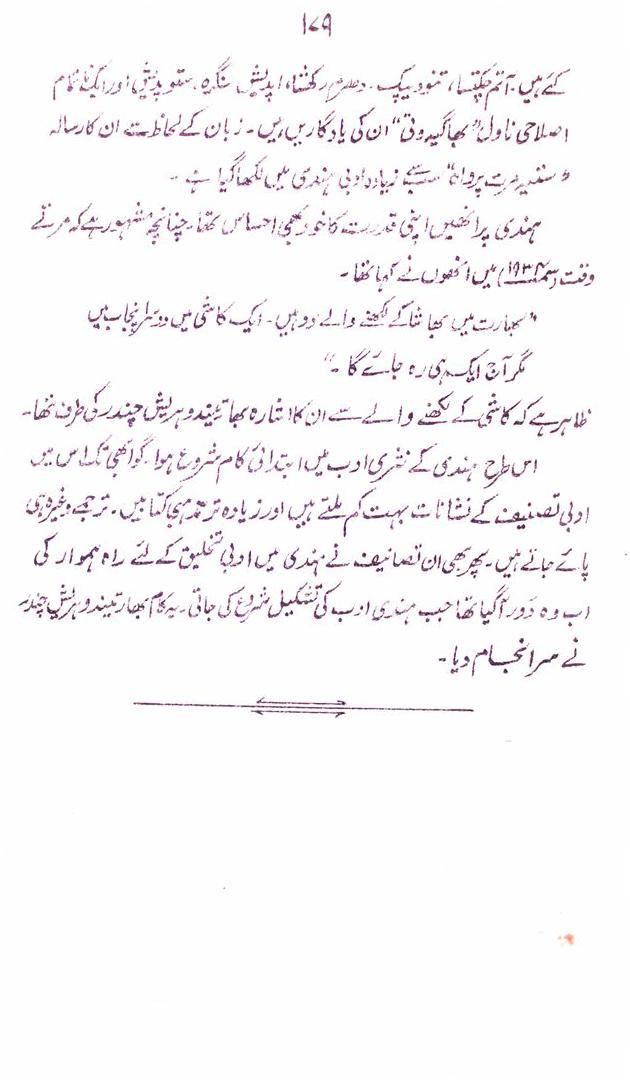 ۱۷۹
کئے ہیں۔ آتم چکتسا، تتودیپک۔ دھرم رکھشا، اپدیش سنگرہ۔ ستوپدیش اور ایک ناتمام
اصلاحی ناول "بھاگیہ وتی" ان کی یادگاریں ہیں۔ زبان کے لحاظ سے ان کا رسالہ
"ستیہ مرت پرواہ" سب سے زیادہ ادبی ہندی میں لکھا گیا ہے۔
ہندی پر انھیں اپنی قدرت کا خود بھی احساس تھا۔ چنانچہ مشہور ہے کہ مرتے
وقت (سمت ۱۹۳۷) میں انھوں نے کہا تھا۔
"بھارت میں بھاشا کے لکھنے والے دو ہیں۔ ایک کاشی میں دوسرا پنجاب میں
مگر آج ایک ہی رہ جائے گا۔"
ظاہر ہے کہ کاشی کے لکھنے والے سے ان کا اشارہ بھارتیندو ہریش چندر کی طرف تھا۔
اس طرح ہندی کے نثری ادب میں ابتدائی کام شروع ہوا۔ گو ابھی تک اس میں
ادبی تصنیف کے نشانات بہت کم ملتے ہیں اور زیادہ تر مذہبی کتابیں۔ ترجمے وغیرہ ہی
پائے جاتے ہیں۔ پھر بھی ان تصانیف نے ہندی میں ادبی تخلیق کے لئے راہ ہموار کی
اب وہ دور آگیا تھا جب ہندی ادب کی تشکیل شروع کی جاتی۔ یہ کام بھارتیندو ہریش چندر
نے سرانجام دیا۔